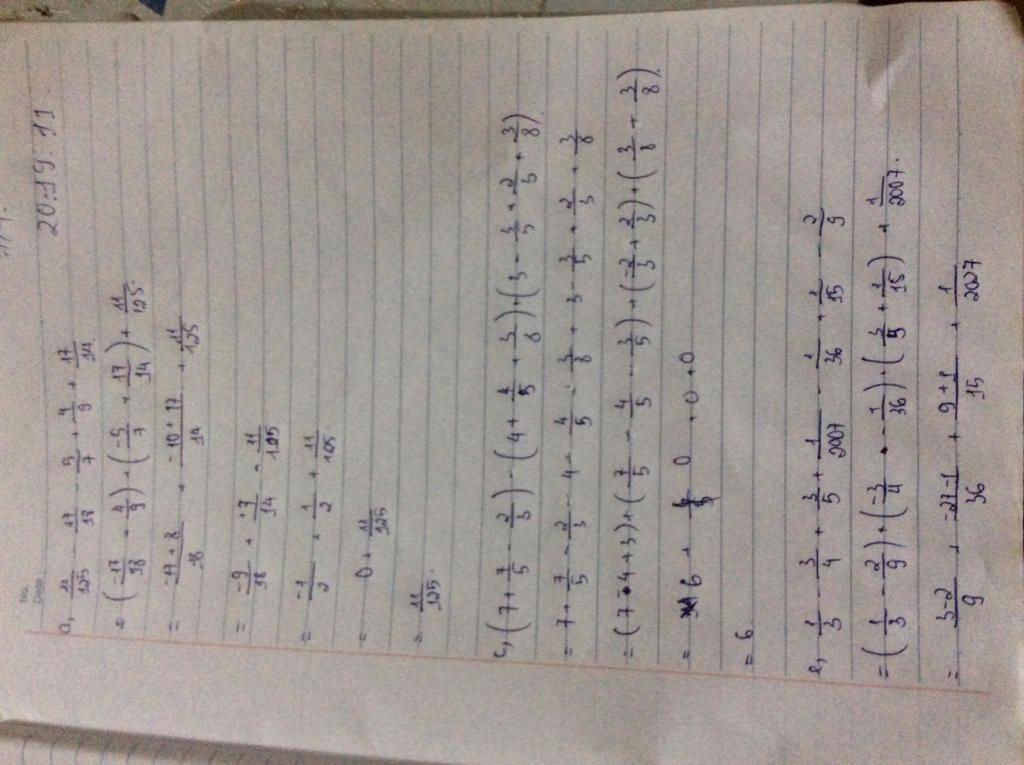 No.
Date
20:19:11.
a, 11/125 - 17/18 - 5/7 + 4/9 + 17/14
= (-17/18 + 4/9) + (-5/7 + 17/14) + 11/125.
= -17+8/18 + -10+17/14 + 11/125
= -9/18 + +7/14 - 11/125
= -1/2 + 1/2 + 11/125
= 0 + 11/125
= 11/125.
c, (7 + 7/5 - 2/3) - (4 + 4/5 + 3/8) + (3 - 3/5 + 2/3 + 3/8)
= 7 + 7/5 - 2/3 - 4 - 4/5 - 3/8 + 3 - 3/5 + 2/3 + 3/8
= (7 - 4 + 3) + (7/5 - 4/5 - 3/5) + (-2/3 + 2/3) + (3/8 + -3/8)
= 6 + 0 + 0 + 0
= 6
e, 1/3 - 3/4 + 3/5 + 1/2007 - 1/36 + 1/15 - 2/9
= (1/3 - 2/9) + (-3/4 - 1/36) + (3/5 + 1/15) + 1/2007.
= 3-2/9 + -27-1/36 + 9+1/15 + 1/2007